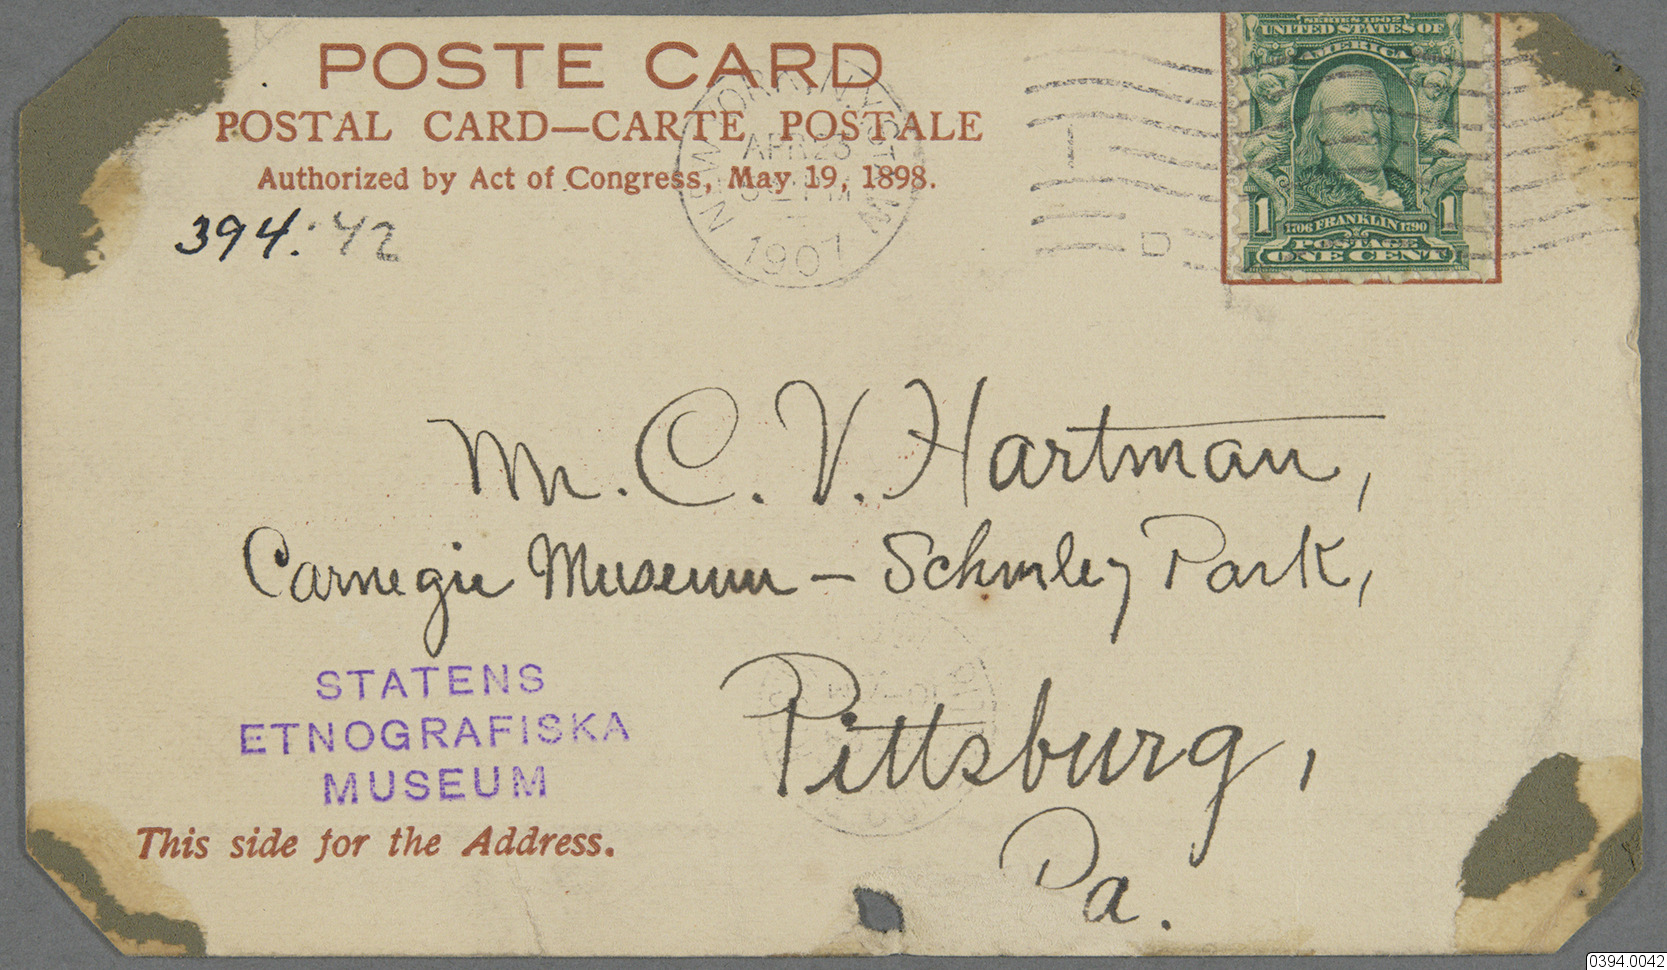 POSTE CARD
POSTAL CARD—CARTE POSTALE
Authorized by Act of Congress, May 19, 1898.
394.42
NEW YORK, N.Y.
APR 23
PM
1907
D
SERIES 1902
UNITED STATES OF
AMERICA
1 1706 FRANKLIN 1790 1
POSTAGE
ONE CENT
Mr. C. V. Hartman,
Carnegie Museum – Schenley Park,
Pittsburg,
Pa.
STATENS
ETNOGRAFISKA
MUSEUM
This side for the Address.
0394.0042